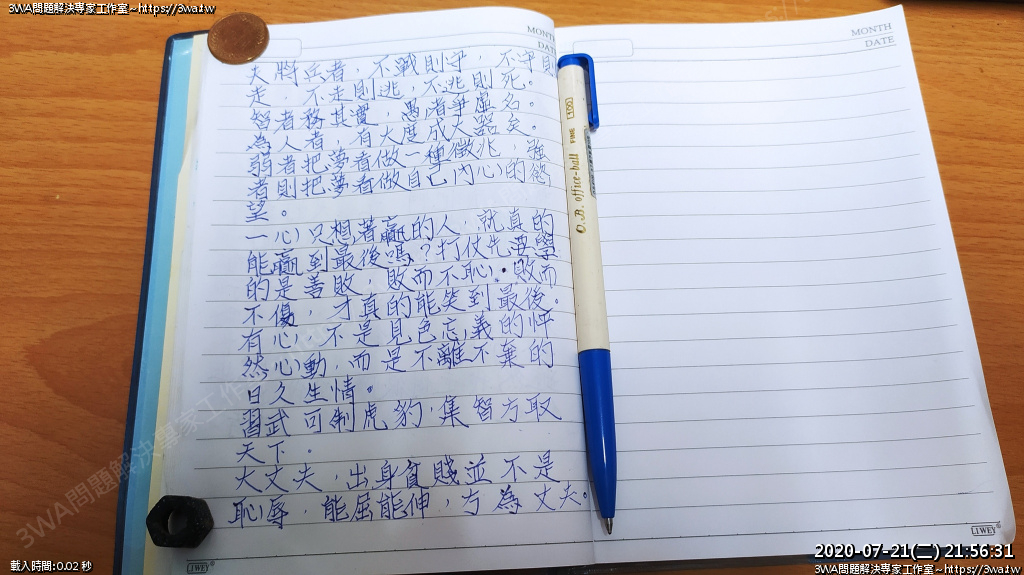 3WA問題解決專家工作室~https://3wa.tw
3WA問題解決專家工作室~https://3wa.tw
MONTH
DATE
MONTH
DATE
夫將兵者，不戰則守，不守則
走，不走則逃，不逃則死。
智者務其實，愚者爭虛名。
為人者，有大度成大器矣。
弱者把夢看做一種徵兆，強
者則把夢看做自己內心的慾
望。
一心只想著贏的人，就真的
能贏到最後嗎？打仗先要學
的是善敗，敗而不恥，敗而
不傷，才真的能笑到最後。
有心，不是見色忘義的怦
然心動，而是不離不棄的
日久生情。
習武可制虎豹，集智方取
天下。
大丈夫，出身貧賤並不是
恥辱，能屈能伸，方為丈夫。
O.B. office-ball FINE 100
JIWEY
JIWEY
3WA問題解決專家工作室
載入時間:0.02 秒
2020-07-21(二) 21:56:31
3WA問題解決專家工作室~https://3wa.tw